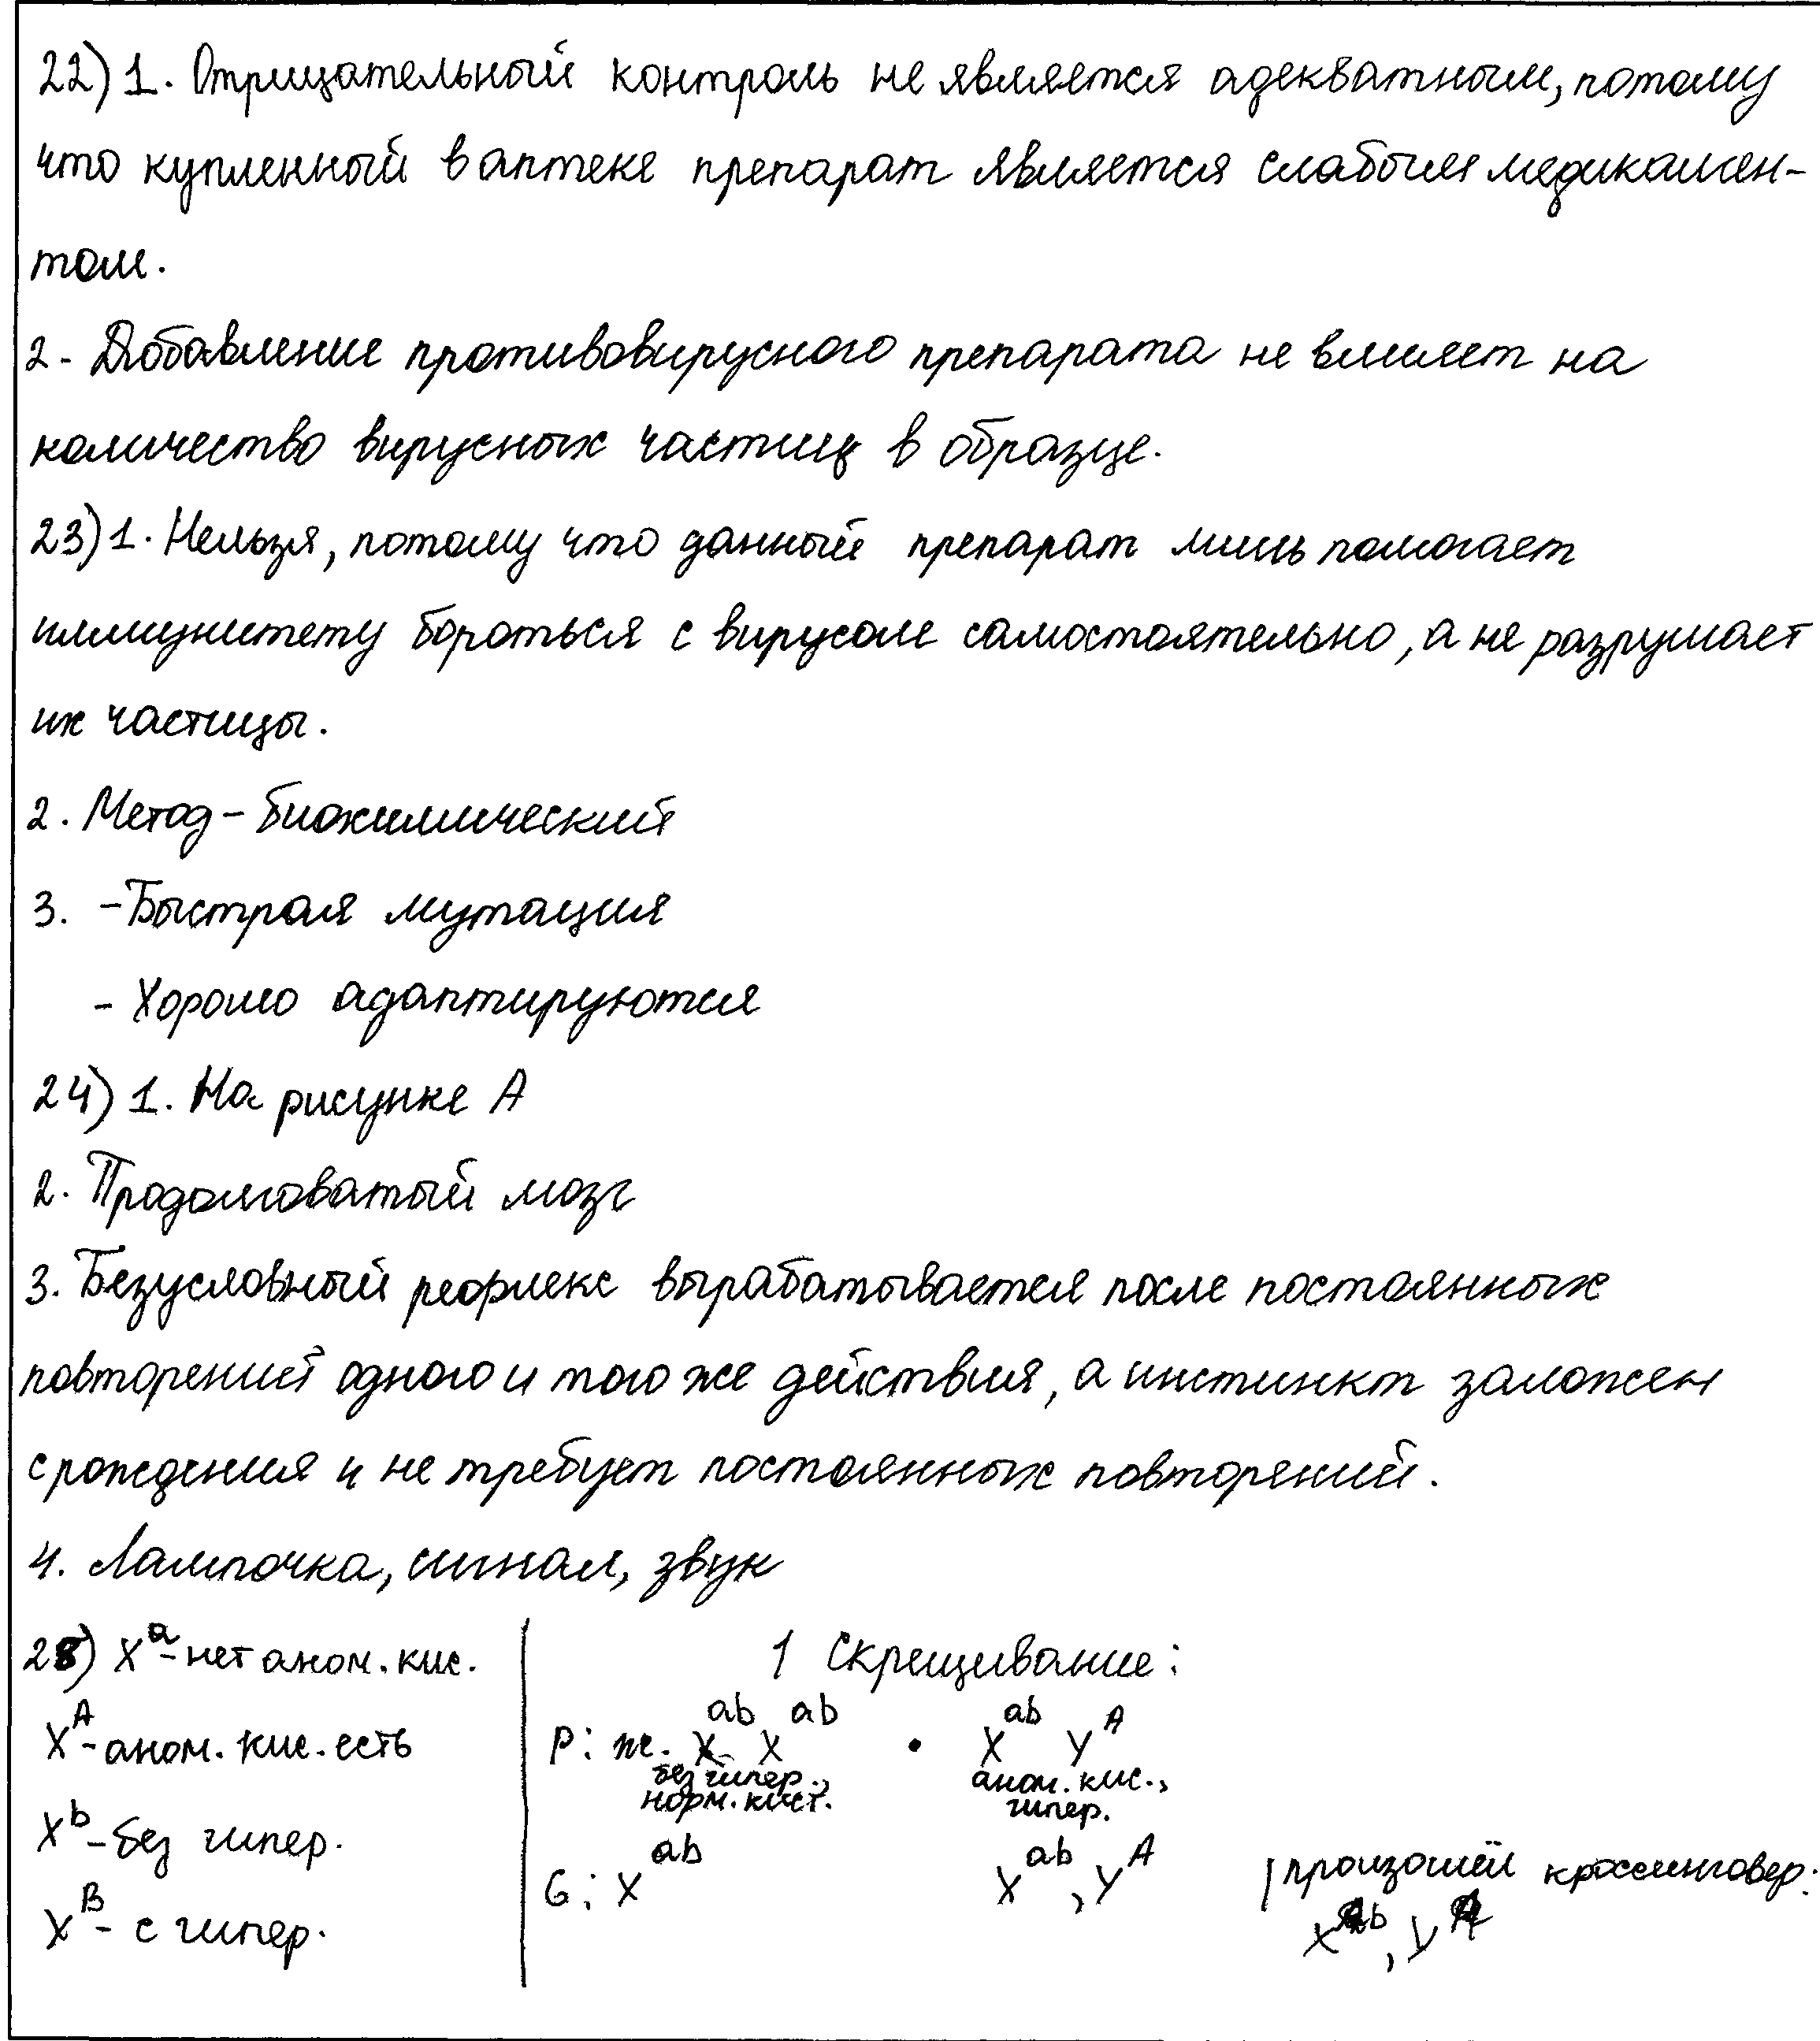 22) 1. Отрицательный контроль не является адекватным, потому
что купленный в аптеке препарат является слабым медикамен-
том.
2 - Добавление противовирусного препарата не влияет на
количество вирусных частиц в образце.
23) 1. Нельзя, потому что данный препарат лишь помогает
иммунитету бороться с вирусом самостоятельно, а не разрушает
их частицы.
2. Метод - биохимический
3. - Быстрая мутация
- Хорошо адаптируются
24) 1. На рисунке А
2. Продолговатый мозг
3. Безусловный рефлекс вырабатывается после постоянных
повторений одного и того же действия, а инстинкт заложен
с рождения и не требует постоянных повторений.
4. Лампочка, сигнал, звук
28) X^a - нет аном. кис.
X^A - аном. кис. есть
X^b - без гипер.
X^B - с гипер.
1 Скрещивание:
P: ж. X^ab X^ab • X^ab Y^A
без гипер., норм. кист. аном. кис., гипер.
G: X^ab X^ab, Y^A | произошёл кроссинговер: